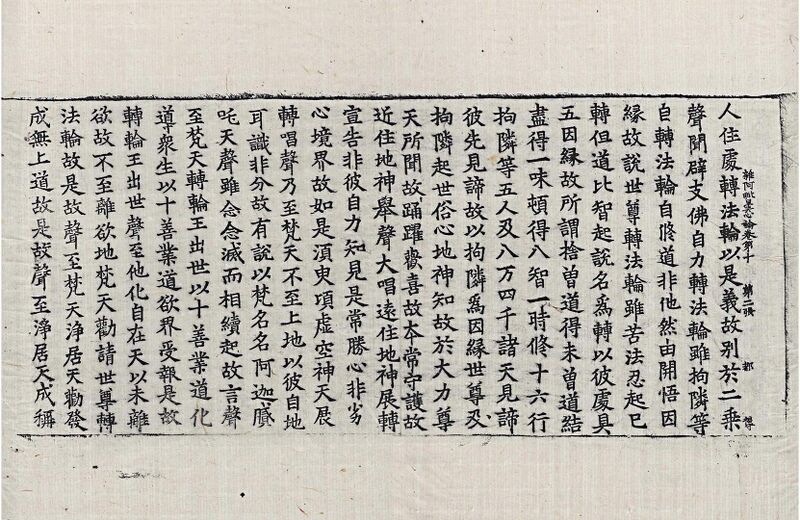 人住處轉法輪以是義故別於二乘
雜阿毗曇心論卷第十 第二張 都 傳
聲聞辟支佛自力轉法輪雖拘隣等
自轉法輪自修道非他然由開悟因
緣故說世尊轉法輪雖苦法忍起已
轉但道比智起說名爲轉以彼處具
五因緣故所謂捨曾道得未曾道結
盡得一味頓得八智一時修十六行
拘隣等五人及八万四千諸天見諦
彼先見諦故以拘隣爲因緣世尊及
拘隣起世俗心地神知故於大力尊
天所聞故踊躍歡喜故本常守護故
近住地神舉聲大唱遠住地神展轉
宣告非彼自力知見是常勝心非劣
心境界故如是須臾頃虛空神天展
轉唱聲乃至梵天不至上地以彼自地
耳識非分故有說以梵名名阿迦膩
吒天聲雖念念滅而相續起故言聲
至梵天轉輪王出世以十善業道化
導衆生以十善業道欲界受報是故
轉輪王出世聲至他化自在天以未離
欲故不至離欲地梵天勸請世尊轉
法輪故是故聲至梵天淨居天勸發
成無上道故是故聲至淨居天成稱